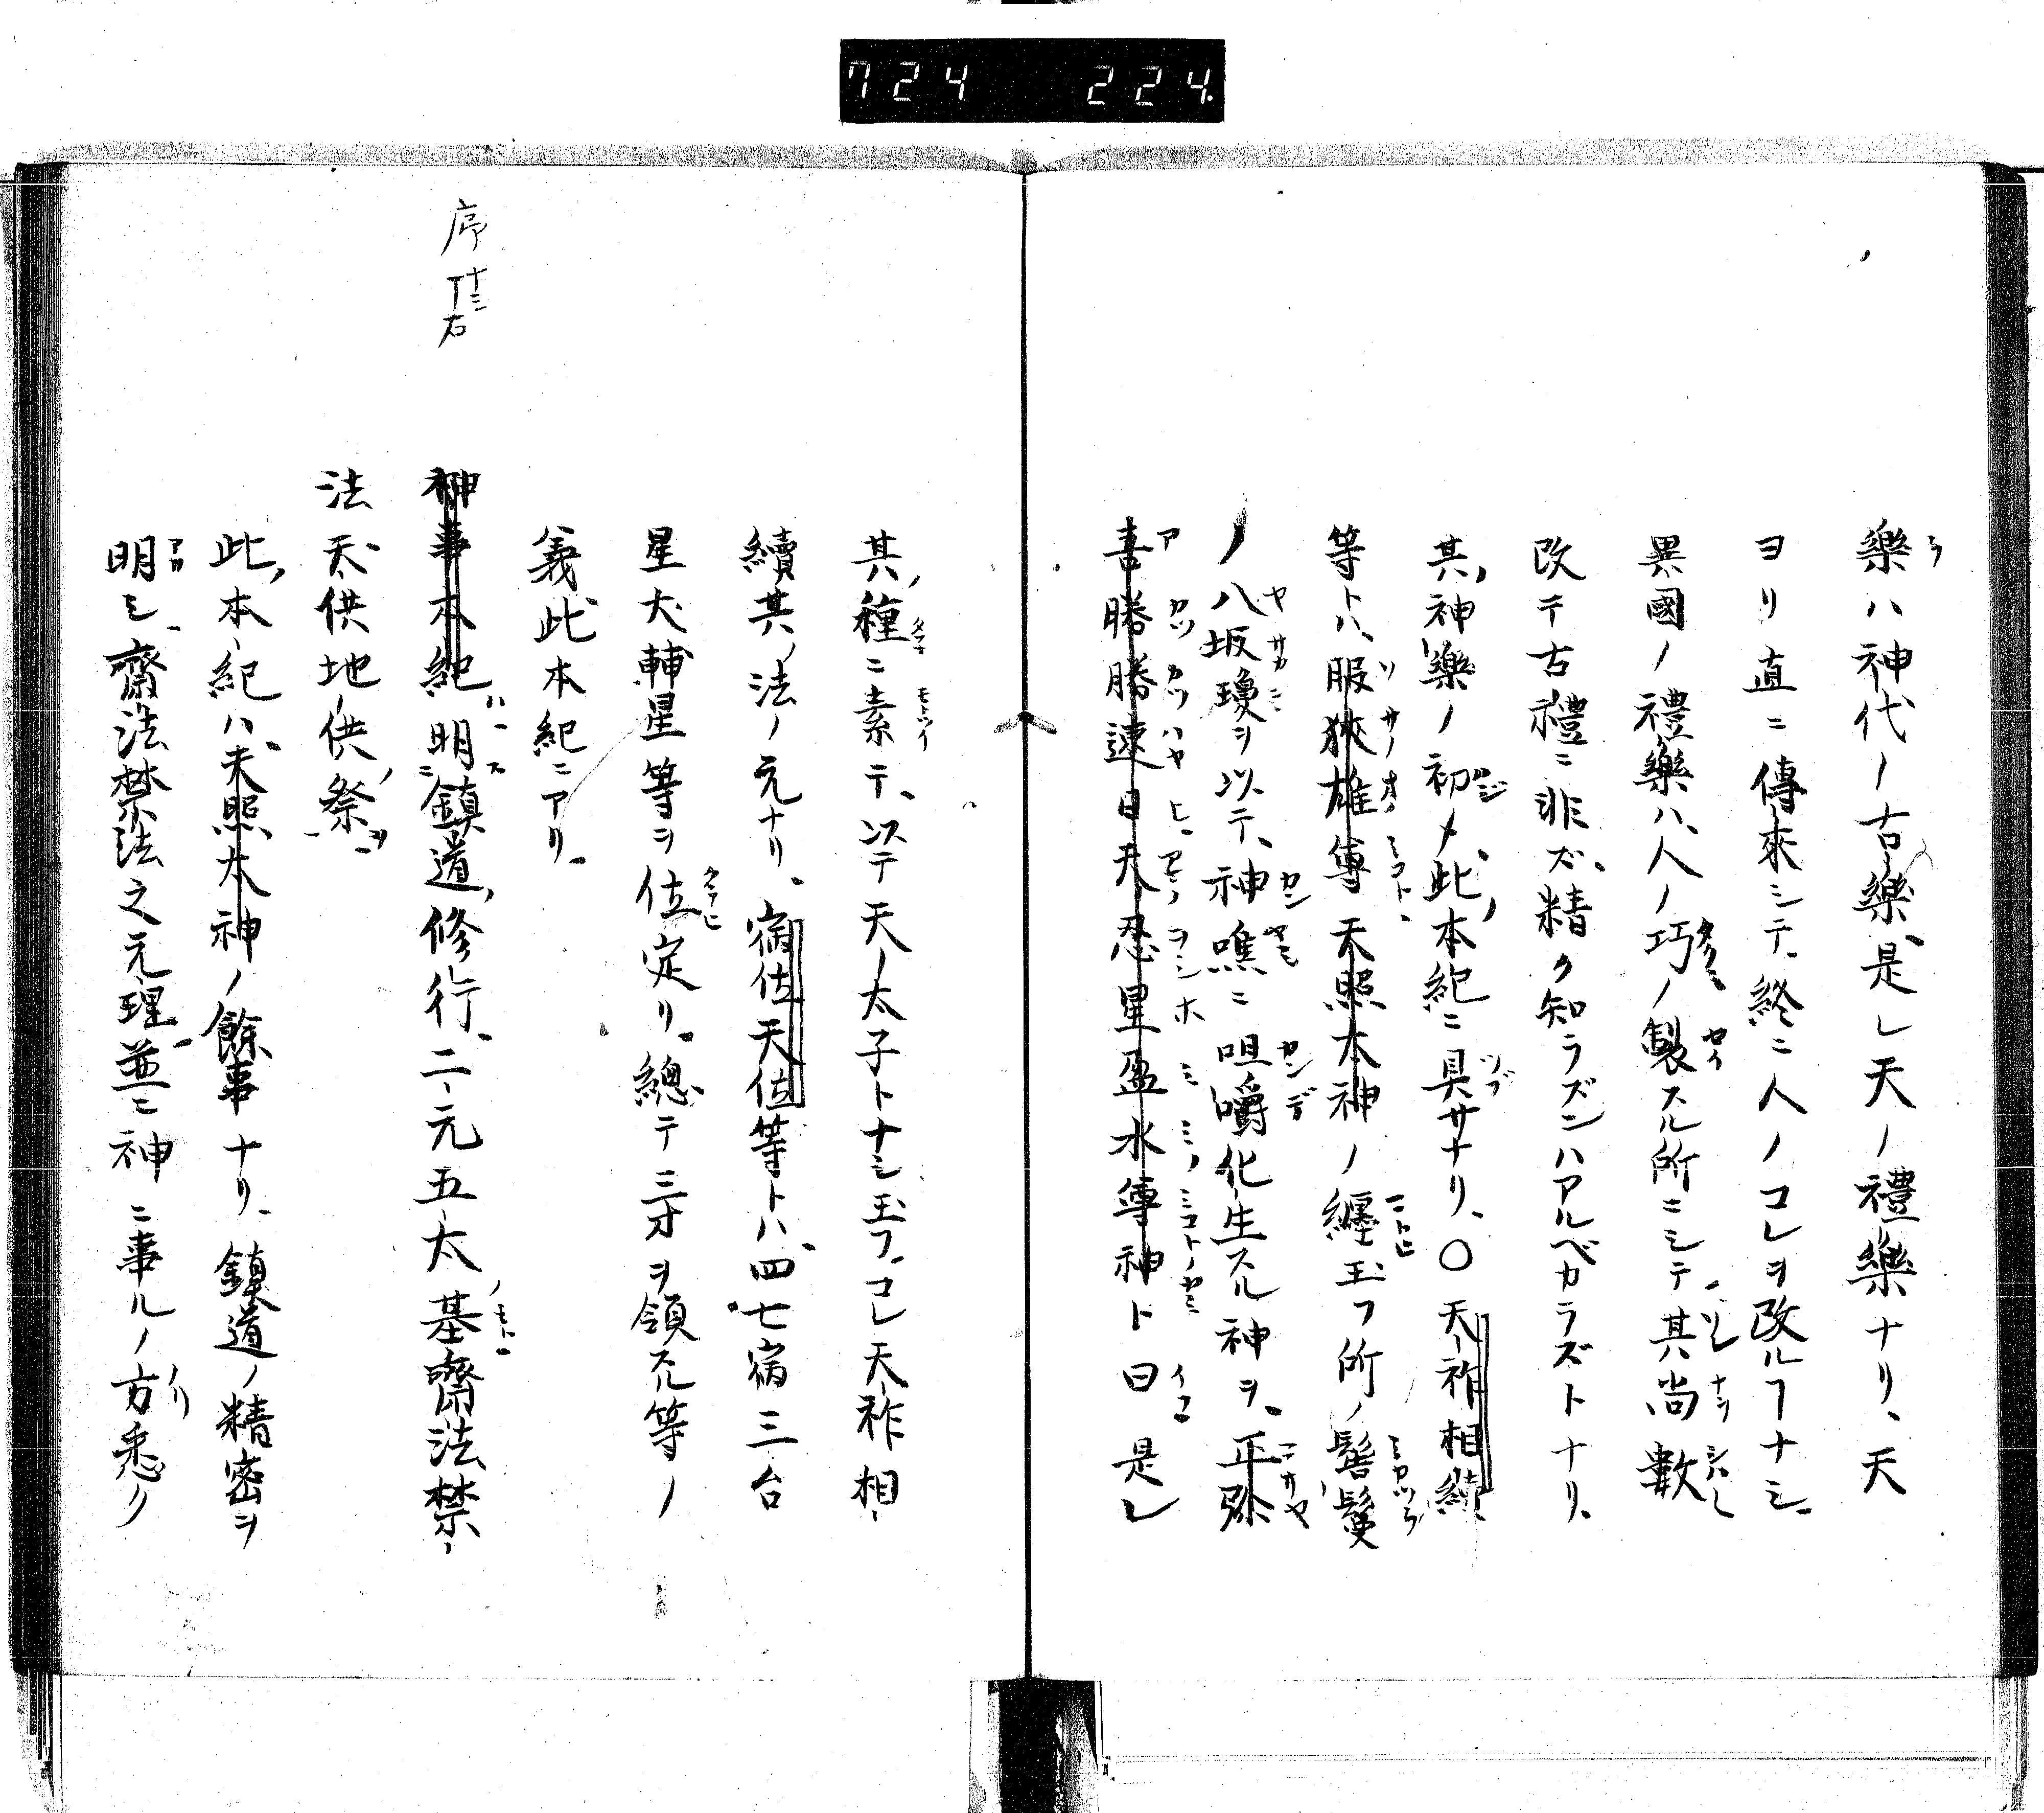 724 224.
樂ハ神代ノ古樂是レ天ノ禮樂ナリ、天
ヨリ直ニ傳來シテ、終ニ人ノコレヲ改ルヿナシ
異國ノ禮樂ハ、人ノ巧ノ製スル所ニシテ其尚數
改テ古禮ニ非ズ、精ク知ラズンハアルベカラズトナリ、
其神樂ノ初メ、此本紀ニ具サナリ、○天祚相續
等トハ、服狹雄尊天照太神ノ纏玉フ所ノ髻鬘
ノ八坂瓊ヲ以テ、神噍ニ咀嚼化生スル神ヲ、正哉
吾勝勝速日天忍星盈水尊神ト曰是レ
其種ニ素テ、以テ天ノ太子トナシ玉フ、コレ天祚相
續其ノ法ノ元ナリ、宿位天位等トハ、四七宿三台
星大輔星等ヲ位定リ、總テ三才ヲ領スル等ノ
義此本紀ニアリ、
序 十三丁右
神事本紀ハ明鎮道修行、二元五太基齋法禁
法天供地供祭ヲ
此本紀ハ、天照太神ノ餘事ナリ、鎮道ノ精密ヲ
明シ、齋法禁法之元理並ニ神ニ事ルノ方悉ク